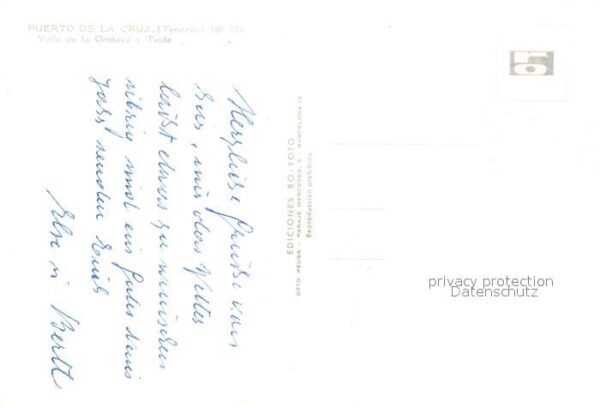 PUERTO DE LA CRUZ. (Tenerife) Nº 373
Valle de la Orotava y Teide
Herzliche Grüße von
hier, nur das Wetter
läßt etwas zu wünschen
übrig und ein gutes neues
Jahr senden Euch
Else u. Bertl
EDICIONES RO-FOTO
OTTO REUSS - PASAJE MERCEDES, 9 - BARCELONA-12
Reproducción prohibida
privacy protection
Datenschutz